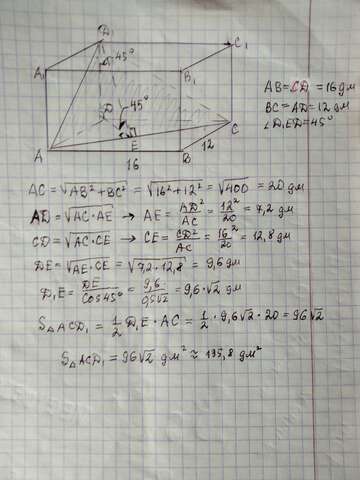 D₁
45°
C₁
A₁
B₁
AB=CD=16дм
BC=AD=12дм
∠D₁ED=45°
D
45°
C
A
E
B
12
16
AC = √AB²+BC² = √16²+12² = √400 = 20 дм
AD = √AC·AE → AE = AD²/AC = 12²/20 = 7,2 дм
CD = √AC·CE → CE = CD²/AC = 16²/20 = 12,8 дм
DE = √AE·CE = √7,2·12,8 = 9,6 дм
D₁E = DE/cos45° = 9,6/0,5√2 = 9,6·√2 дм
S△ACD₁ = 1/2 D₁E·AC = 1/2·9,6√2·20 = 96√2
S△ACD₁ = 96√2 дм² ≈ 135,8 дм²